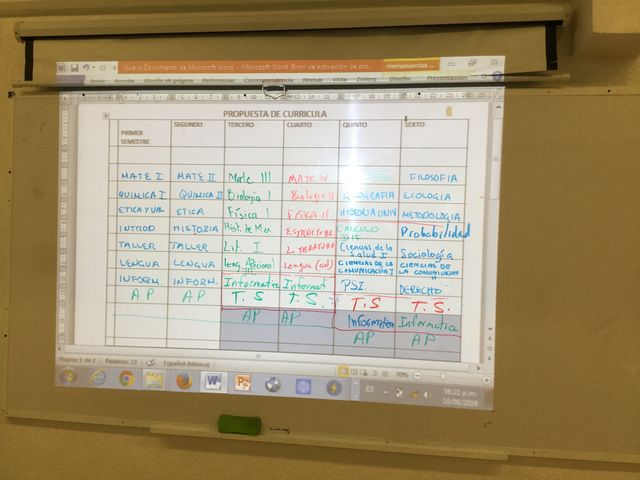 Nuevo Documento de Microsoft Word - Microsoft Word (Error de activación de pro...
Herramientas ...
Inicio Insertar Diseño de página Referencias Correspondencia Revisar Vista Diseño Presentación
PROPUESTA DE CURRICULA
PRIMER SEMESTRE SEGUNDO TERCERO CUARTO QUINTO SEXTO
MATE I MATE II Mate III MATE IV FILOSOFIA
QUIMICA I QUIMICA II Biología I Biología II GEOGRAFIA ECOLOGIA
ETICA Y VAL ETICA Física I FISICA II HISTORIA UNIV METODOLOGIA
INTROD HISTORIA Hist. de Mex ESTRUCTURA CALCULO Probabilidad
TALLER TALLER Lit. I LITERATURA Ciencias de la Salud I Sociología
LENGUA LENGUA Leng. Adicional III Lengua CIENCIAS DE LA COMUNICACION I CIENCIAS DE LA COMUNICACION II
INFORM. INFORM. Informatica Informat PSI. DERECHO
AP AP T.S T.S. T.S T.S.
AP AP Informatica Informatica
AP AP
Página: 1 de 2 Palabras: 22 Español (México) 70%
ES 06:21 p.m.
19/08/2016